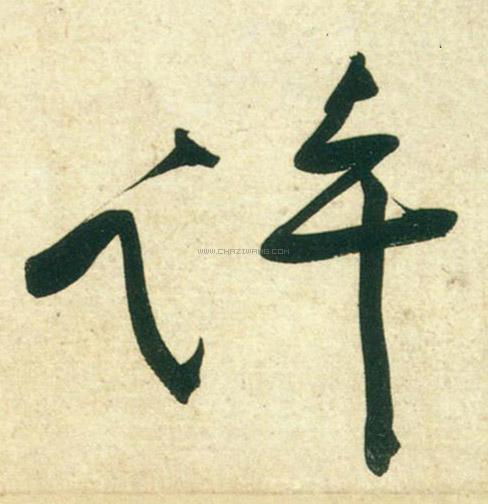 许
WWW.CHAZIWANG.COM